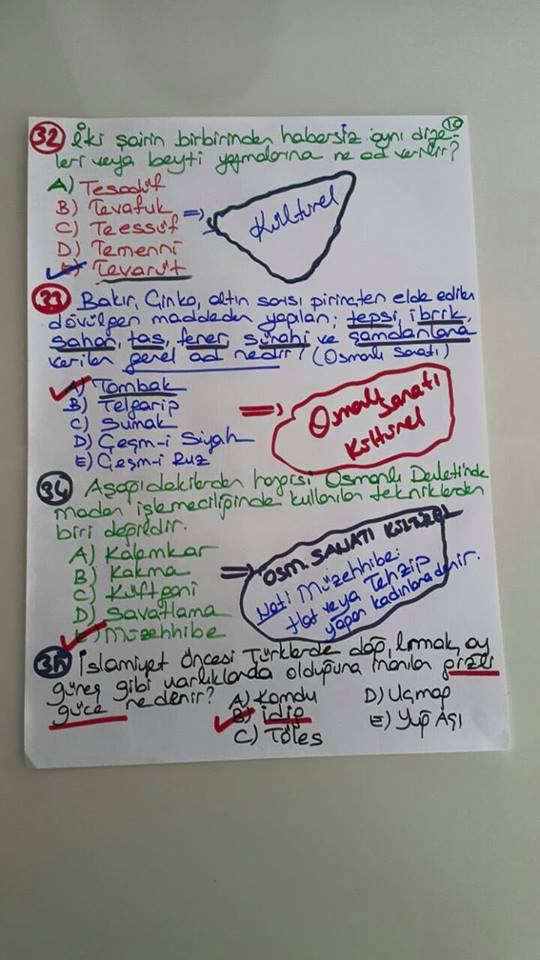 10
32 İki şairin birbirinden habersiz aynı dize-
leri veya beyti yazmalarına ne ad verilir?
A) Tesadüf
B) Tevafuk =>
C) Teessüf
D) Temenni
E) Tevarüt
Kültürel
33 Bakır, Çinko, altın sarısı pirinçten elde edilen
dövülgen maddeden yapılan; tepsi, ibrik,
sahan, tas, fener, sürahi ve şamdanlara
verilen genel ad nedir? (Osmanlı Sanatı)
A) Tombak
B) Telgarip =>
C) Sumak
D) Çeşm-i Siyah
E) Çeşm-i Ruz
Osmanlı Sanatı
Kültürel
34 Aşağıdakilerden hangisi Osmanlı Devleti'nde
maden işlemeciliğinde kullanılan tekniklerden
biri değildir.
A) Kalemkar
B) Kakma =>
C) Küftgani
D) Savatlama
E) Müzehhibe
OSM. SANATI KÜLTÜREL
Not: Müzehhibe:
Hat veya Tehzip
yapan kadınlara denir.
35 İslamiyet Öncesi Türklerde dağ, Irmak, ay
güneş gibi varlıklarda olduğuna inanılan gizli
güce ne denir? A) Kamdu D) Uçmag
B) idip E) Yuğ Aşı
C) Töles